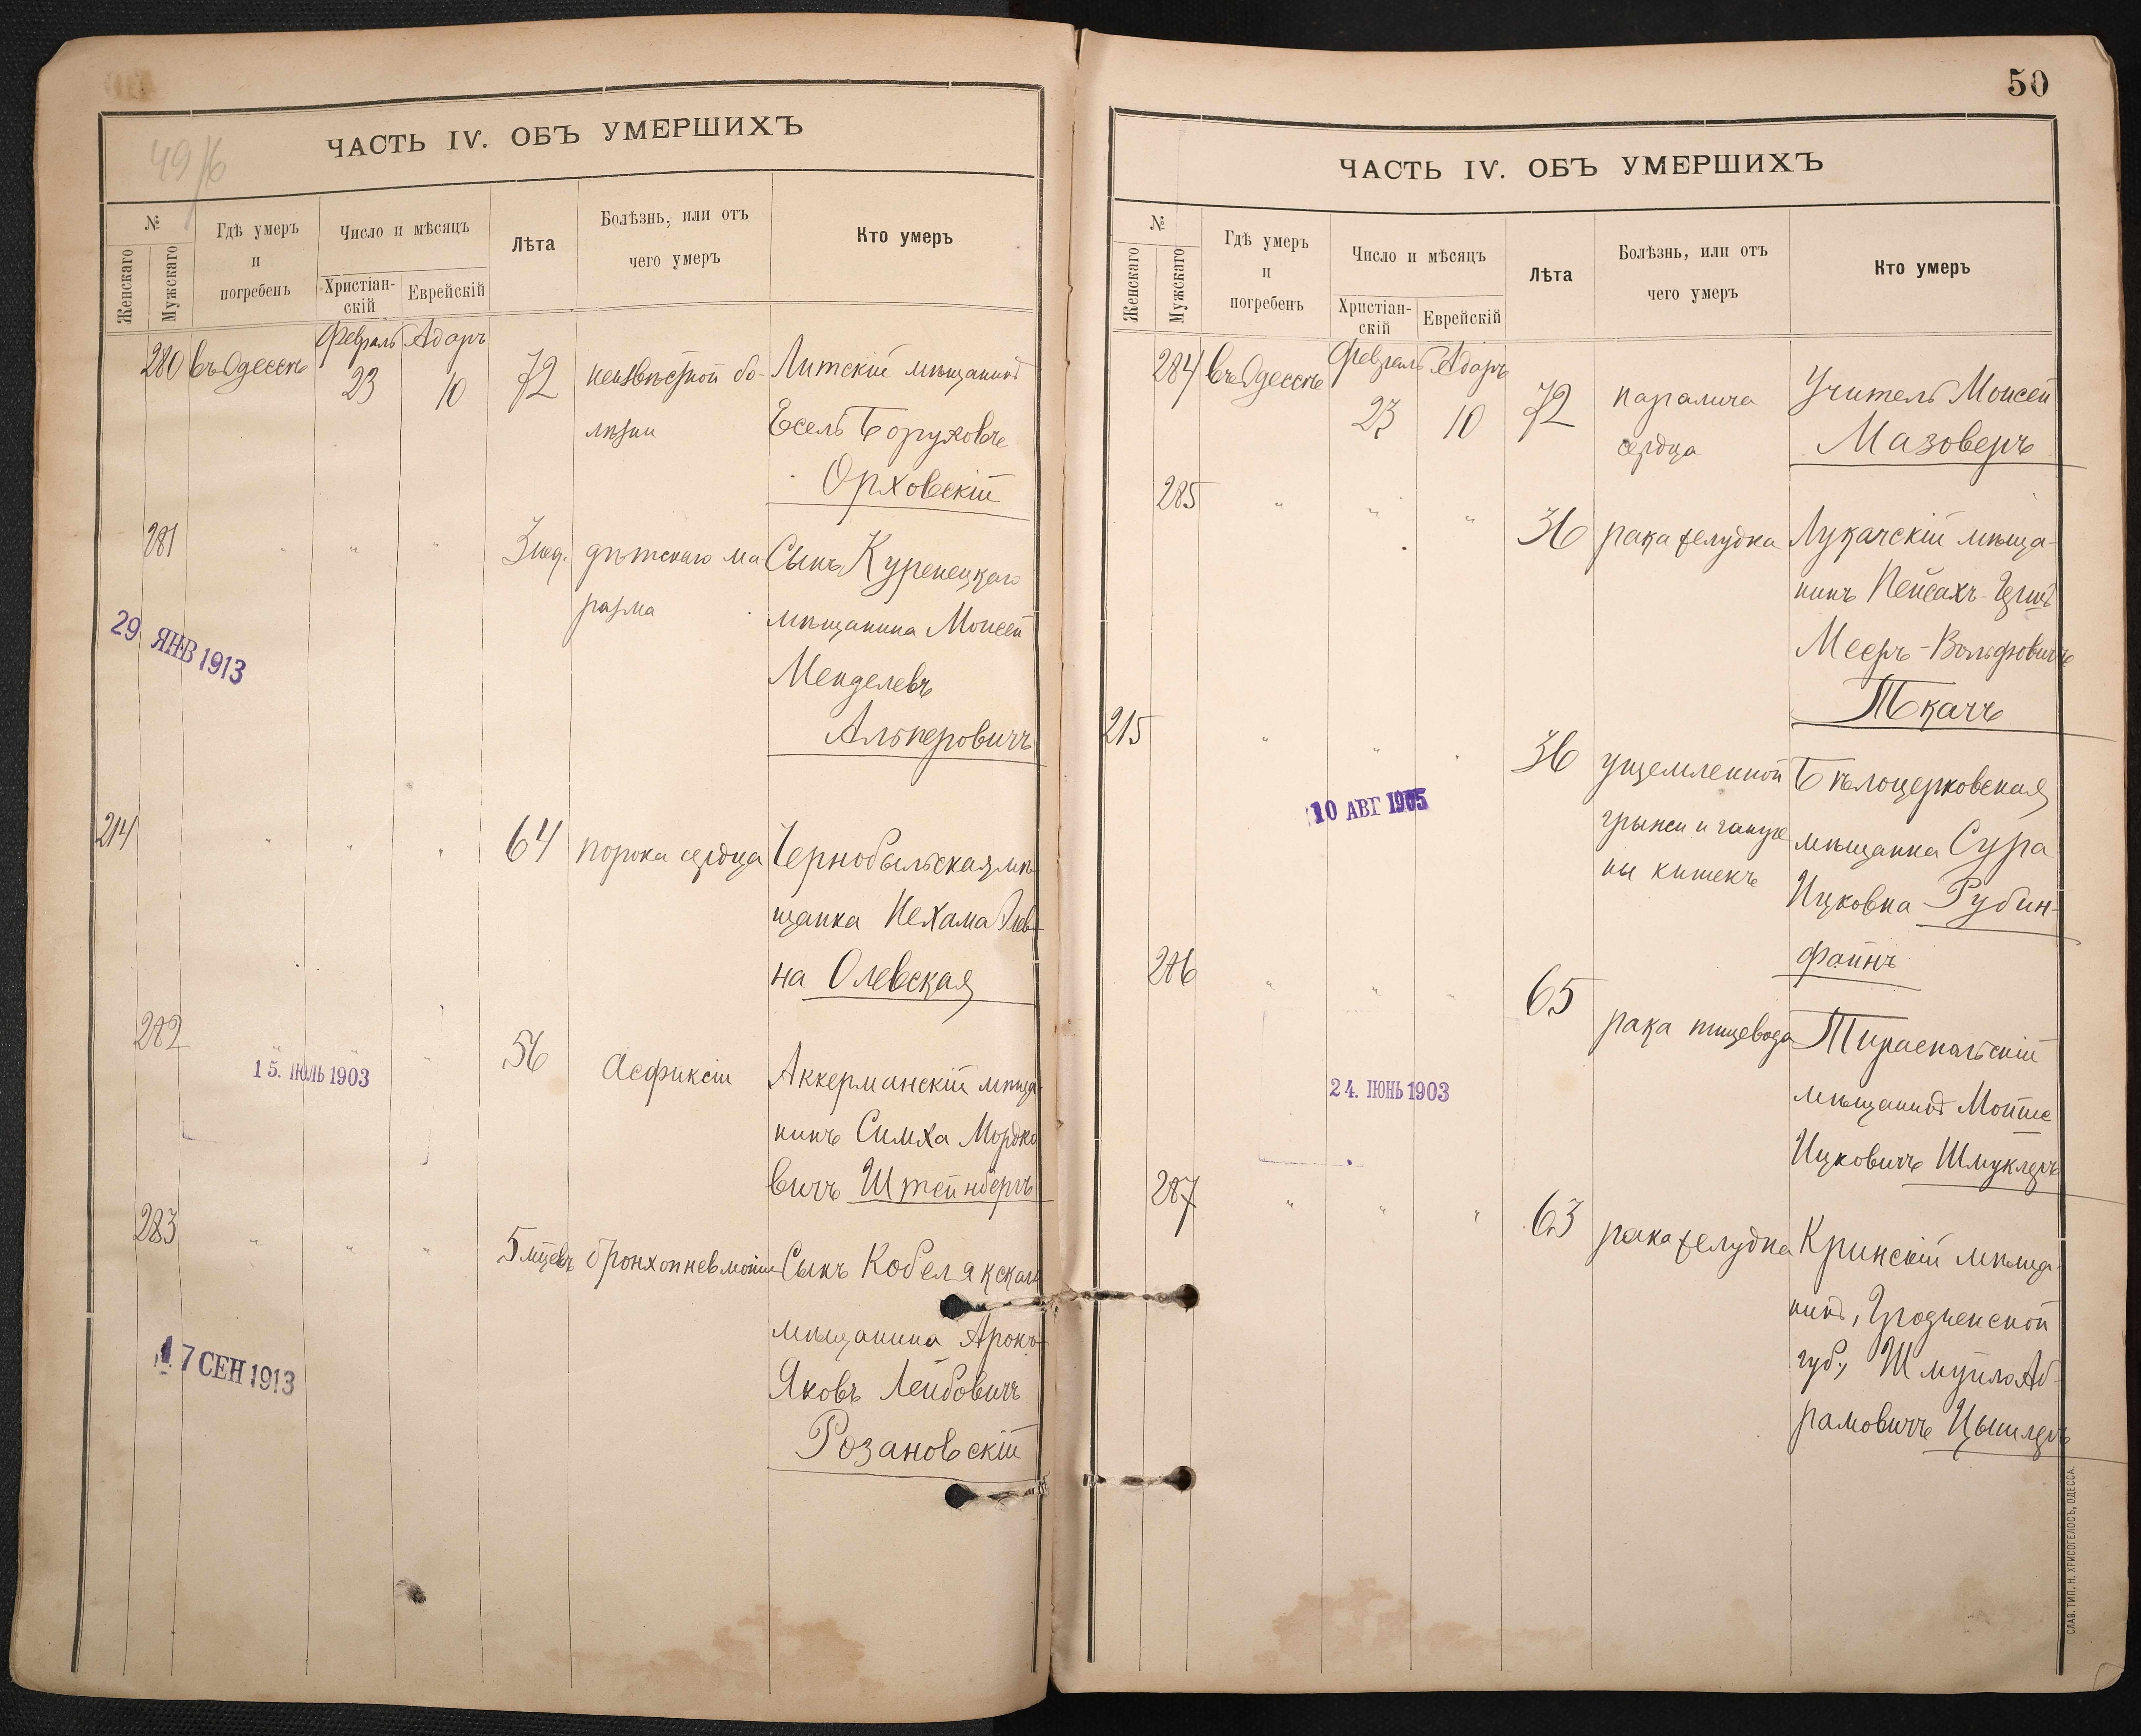 49/б
ЧАСТЬ IV. ОБЪ УМЕРШИХЪ
№
Женскаго
Мужскаго
Гдѣ умеръ
и
погребенъ
Число и мѣсяцъ
Христіан-
скій
Еврейскій
Лѣта
Болѣзнь, или отъ
чего умеръ
Кто умеръ
280 въ Одессѣ Февраль 23 Адаръ 10 72 неизвѣстной бо- Литскій мѣщанинъ
лѣзни Есель Боруховъ
Орховскій
281 " " " 3 нед. дѣтскаго ма Сынъ Куренецкаго
разма мѣщанина Моисей
Менделевъ
Альперовичъ
29 ЯНВ 1913
214 " " " 64 порока сердца Чернобыльская мѣ-
щанка Нехама
на Олевская
282 " " " 56 Асфиксіи Аккерманскій мѣща-
нинъ Симха Мордко
вичъ Штейнбергъ
15. ІЮЛЬ 1903
283 " " " 5 мцевъ бронхопневмоніи Сынъ Кобелякскаго
мѣщанина Аронъ-
Яковъ Лейбовичъ
Розановскій
17 СЕН 1913
50
ЧАСТЬ IV. ОБЪ УМЕРШИХЪ
№
Женскаго
Мужскаго
Гдѣ умеръ
и
погребенъ
Число и мѣсяцъ
Христіан-
скій
Еврейскій
Лѣта
Болѣзнь, или отъ
чего умеръ
Кто умеръ
284 въ Одессѣ Февраль 23 Адаръ 10 72 паралича Учитель Моисей
сердца Мазоверъ
285 " " " 36 рака желудка Лукачскій мѣща-
нинъ Пейсахъ-Гершъ
Мееръ-Вольфовичъ
Ткачъ
215 " " " 36 ущемленной Бѣлоцерковская
грыжи и гангре мѣщанка Сура
ны кишекъ Ицковна Рубин-
файнъ
10 АВГ 1905
286 " " " 65 рака пищевода Тираспольскій
мѣщанинъ Мойше
Ицковичъ Шмуклеръ
24. ІЮНЬ 1903
287 " " " 63 рака желудка Кринскій мѣща-
нинъ, Гродненской
губ., Шмуйло Аб-
рамовичъ Цыпилеръ
СЛАВ. ТИП. Н. ХРИСОГЕЛОСЪ, ОДЕССА.